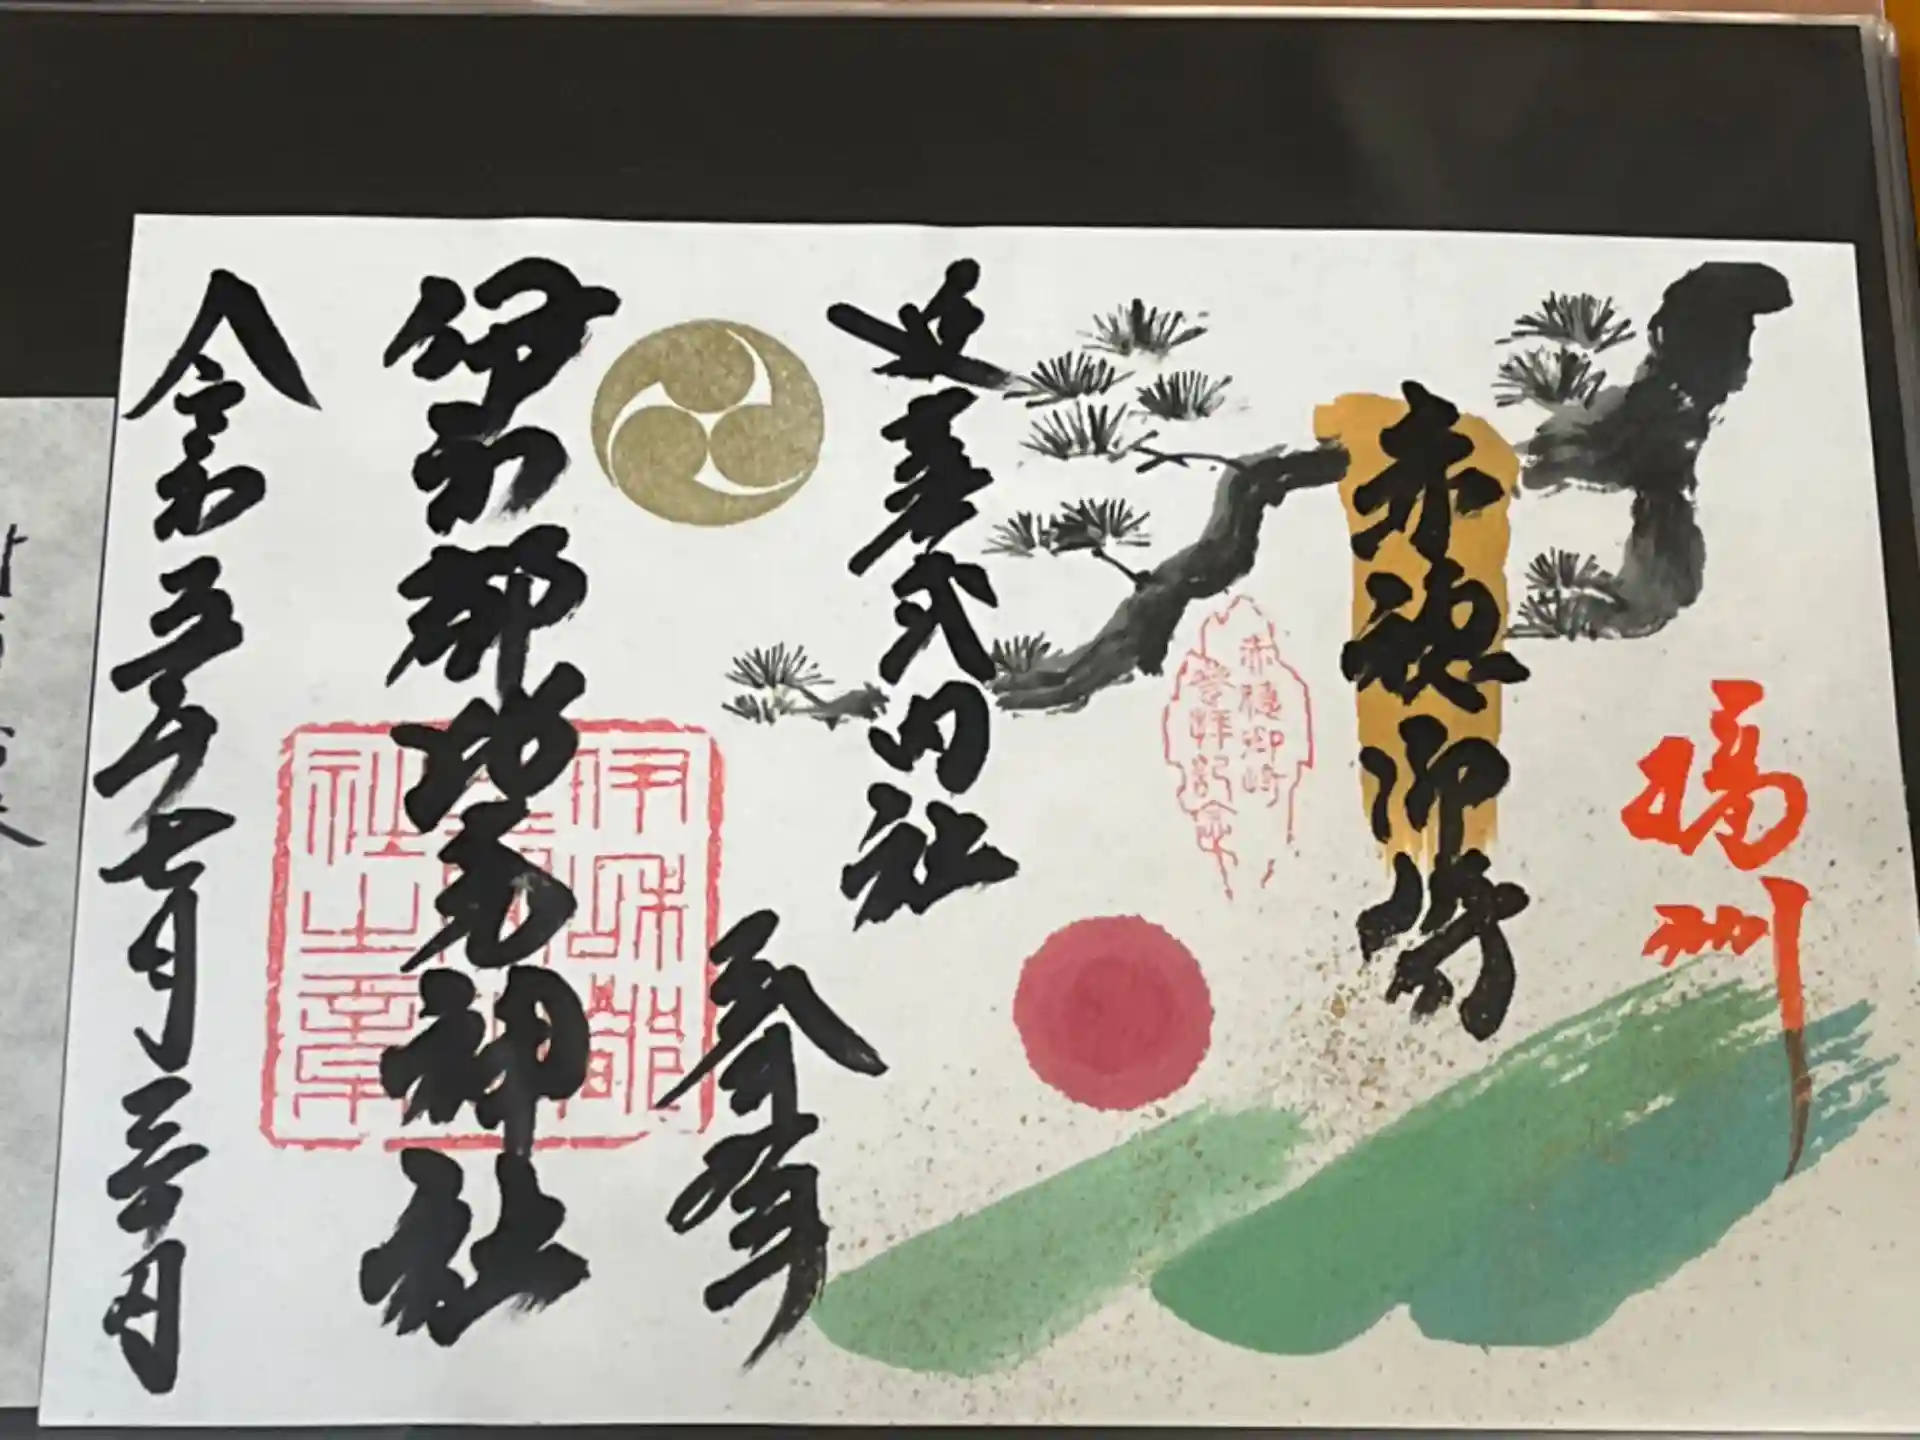 播州
赤穂御崎
赤穂御崎
登拝記念
延喜式内社
奉拝
伊和都比売神社
伊和都
社之章
令和五年七月三十日